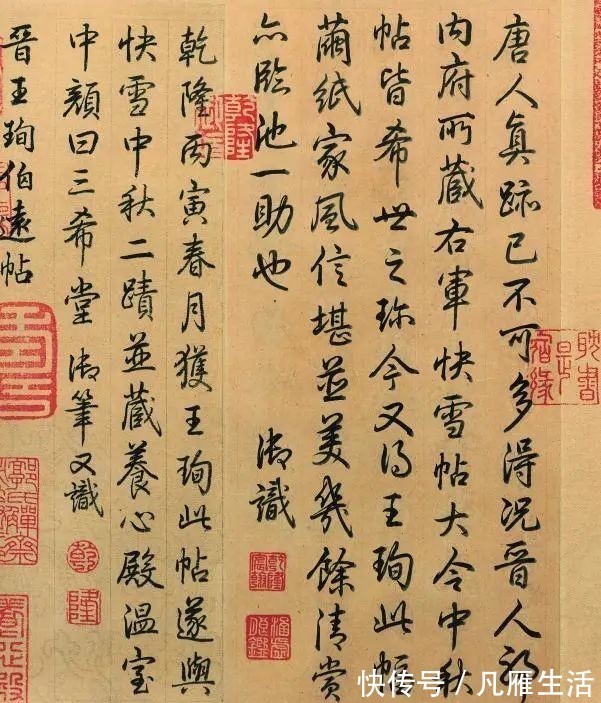 唐人真跡已不可多得況晉人耶
內府所藏右軍快雪帖大令中秋
帖皆希世之珎今又得王珣此幅
繭紙家風信堪並美幾餘清賞
亦臨池一助也 御識
乾隆丙寅春月獲王珣此帖遂與
快雪中秋二蹟並藏養心殿溫室
中顏曰三希堂 御筆又識
乾
隆
晉王珣伯遠帖
乾隆
快传号/凡雁生活